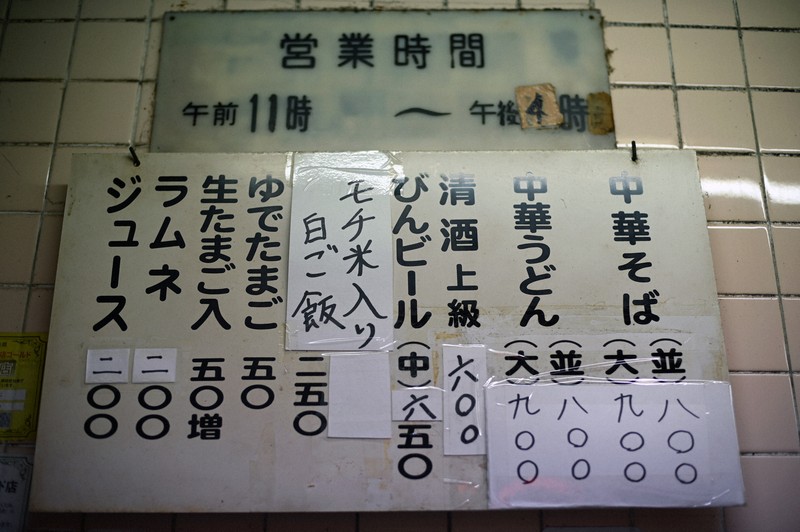 営業時間
午前11時 〜 午後4時
中華そば (並) 八〇〇
(大) 九〇〇
中華うどん (並) 八〇〇
(大) 九〇〇
清酒上級 六〇〇
びんビール (中) 六五〇
モチ米入り
白ご飯 二五〇
ゆでたまご 五〇
生たまご入 五〇増
ラムネ 二〇〇
ジュース 二〇〇